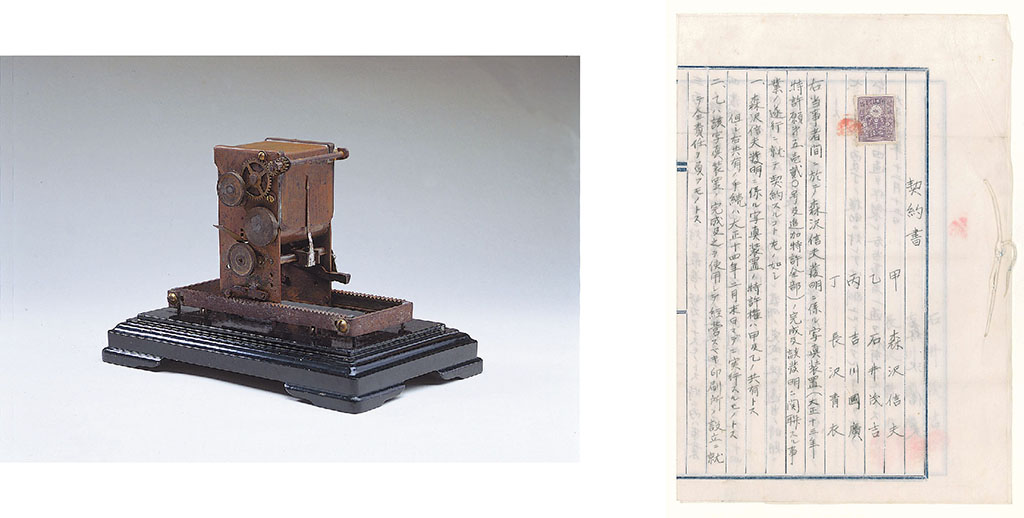 契約書
甲　森沢信夫
乙　石井茂吉
丙　吉川國廣
丁　長沢青衣
右当事者間ニ於テ森沢信夫発明ニ係ル写真装置(大正十三年
特許願第五壱貳〇号及追加特許全部)ノ完成及該発明ニ関聯スル事
業ノ遂行ニ就テ契約スルコト左ノ如シ
一、森沢信夫発明ニ係ル写真装置ノ特許権ハ甲及乙ノ共有トス
但シ右共有ノ手続ハ大正十四年二月末日マデニ実行スルモノトス
二、乙ハ該写真装置ノ完成及之ヲ使用シテ経営スベキ印刷所ノ設立ニ就
テ全責任ヲ負フモノトス